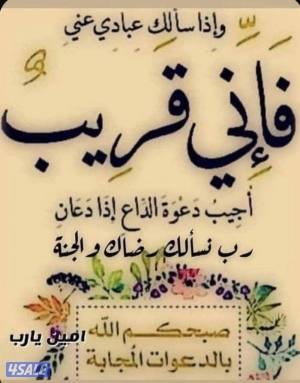 وإذا سألك عبادي عني
فَإِنِّي قَرِيبٌ
أُجِيبُ دَعْوَةَ الدَّاعِ إِذَا دَعَانِ
رب نسألك رضاك والجنة
امين يارب
صبحكم الله
بالدعوات المجابة
4SALE